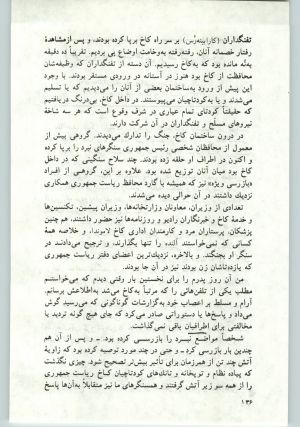 تفنگداران (کارابینه‌رس) بر سر راه کاخ برپا کرده بودند، و پس از مشاهدهٔ
رفتار خصمانه آنان، رفته‌رفته به‌وخامت اوضاع پی بردیم. تقریباً ده دقیقه
به‌نه مانده بود که به‌کاخ رسیدیم. آن دسته از تفنگداران که وظیفه‌شان
محافظت از کاخ بود هنوز در آستانه در ورودی مستقر بودند. با وجود
این پیش از ورود به‌ساختمان بعضی از آنان را می‌دیدیم که یا تسلیم
می‌شدند و یا به‌کودتاچیان می‌پیوستند. در داخل کاخ، بی‌درنگ دریافتیم
که حقیقتاً کودتای تمام عیاری در شرف وقوع است که هر سه شاخهٔ
نیروهای مسلح و تفنگداران در آن شرکت دارند.
در درون ساختمان کاخ، جنگ را تدارک می‌دیدند. گروهی بیش از
معمول از محافظان شخصی رئیس جمهوری سنگرهای نبرد را برپا کرده
و اکنون در اطراف او حلقه زده بودند. چند سلاح سنگینی که در داخل
کاخ بود میان آنان توزیع شده بود. علاوه بر این، گروهی از افراد
«بازرسی ویژه» نیز که همیشه با گارد محافظ ریاست جمهوری همکاری
نزدیک داشتند در آن حوالی دیده می‌شدند.
تعدادی از وزیران، معاونان وزارتخانه‌ها، وزیران پیشین، تکنسین‌ها
و خدمهٔ کاخ و خبرنگاران رادیو و روزنامه‌ها نیز حضور داشتند، هم چنین
پزشکان، پرستاران مرد و کارمندان اداری کاخ لاموندا، و خلاصه همهٔ
کسانی که نمی‌خواستند آلنده را تنها بگذارند، و ترجیح می‌دادند در
سنگر او بجنگند. و بالاخره، نزدیک‌ترین اعضای دفتر ریاست جمهوری
که یازده‌تاشان زن بودند نیز در آن جا بودند.
من آن روز پدرم را برای نخستین بار وقتی دیدم که می‌خواستم
مطلب یکی از تلفن‌هائی را که مرتباً به‌کاخ می‌شد به‌اطلاعش برسانم.
آرام و مسلط بر اعصاب خود به‌گزارشات گوناگونی که می‌رسید گوش
می‌داد و پاسخ‌ها یا دستوراتی صادر می‌کرد که جای هیچ گونه تردید یا
مخالفتی برای اطرافیان باقی نمی‌گذاشت.
شخصاً مواضع نبرد را بازرسی کرده بود. ـ و پس از آن هم
چندین بار بازرسی کرد ـ و حتی در چند مورد توصیه کرده بود که زاویهٔ
آتش چند تن از همرزمان برای تأثیر بیش‌تر تصحیح شود. چیزی نگذشت
که پیاده نظام و توپخانه و تانک‌های کودتاچیان کاخ ریاست جمهوری
را از همه سو زیر آتش گرفتند و همسنگرهای ما نیز متقابلاً به‌آن‌ها پاسخ
۱۳۶